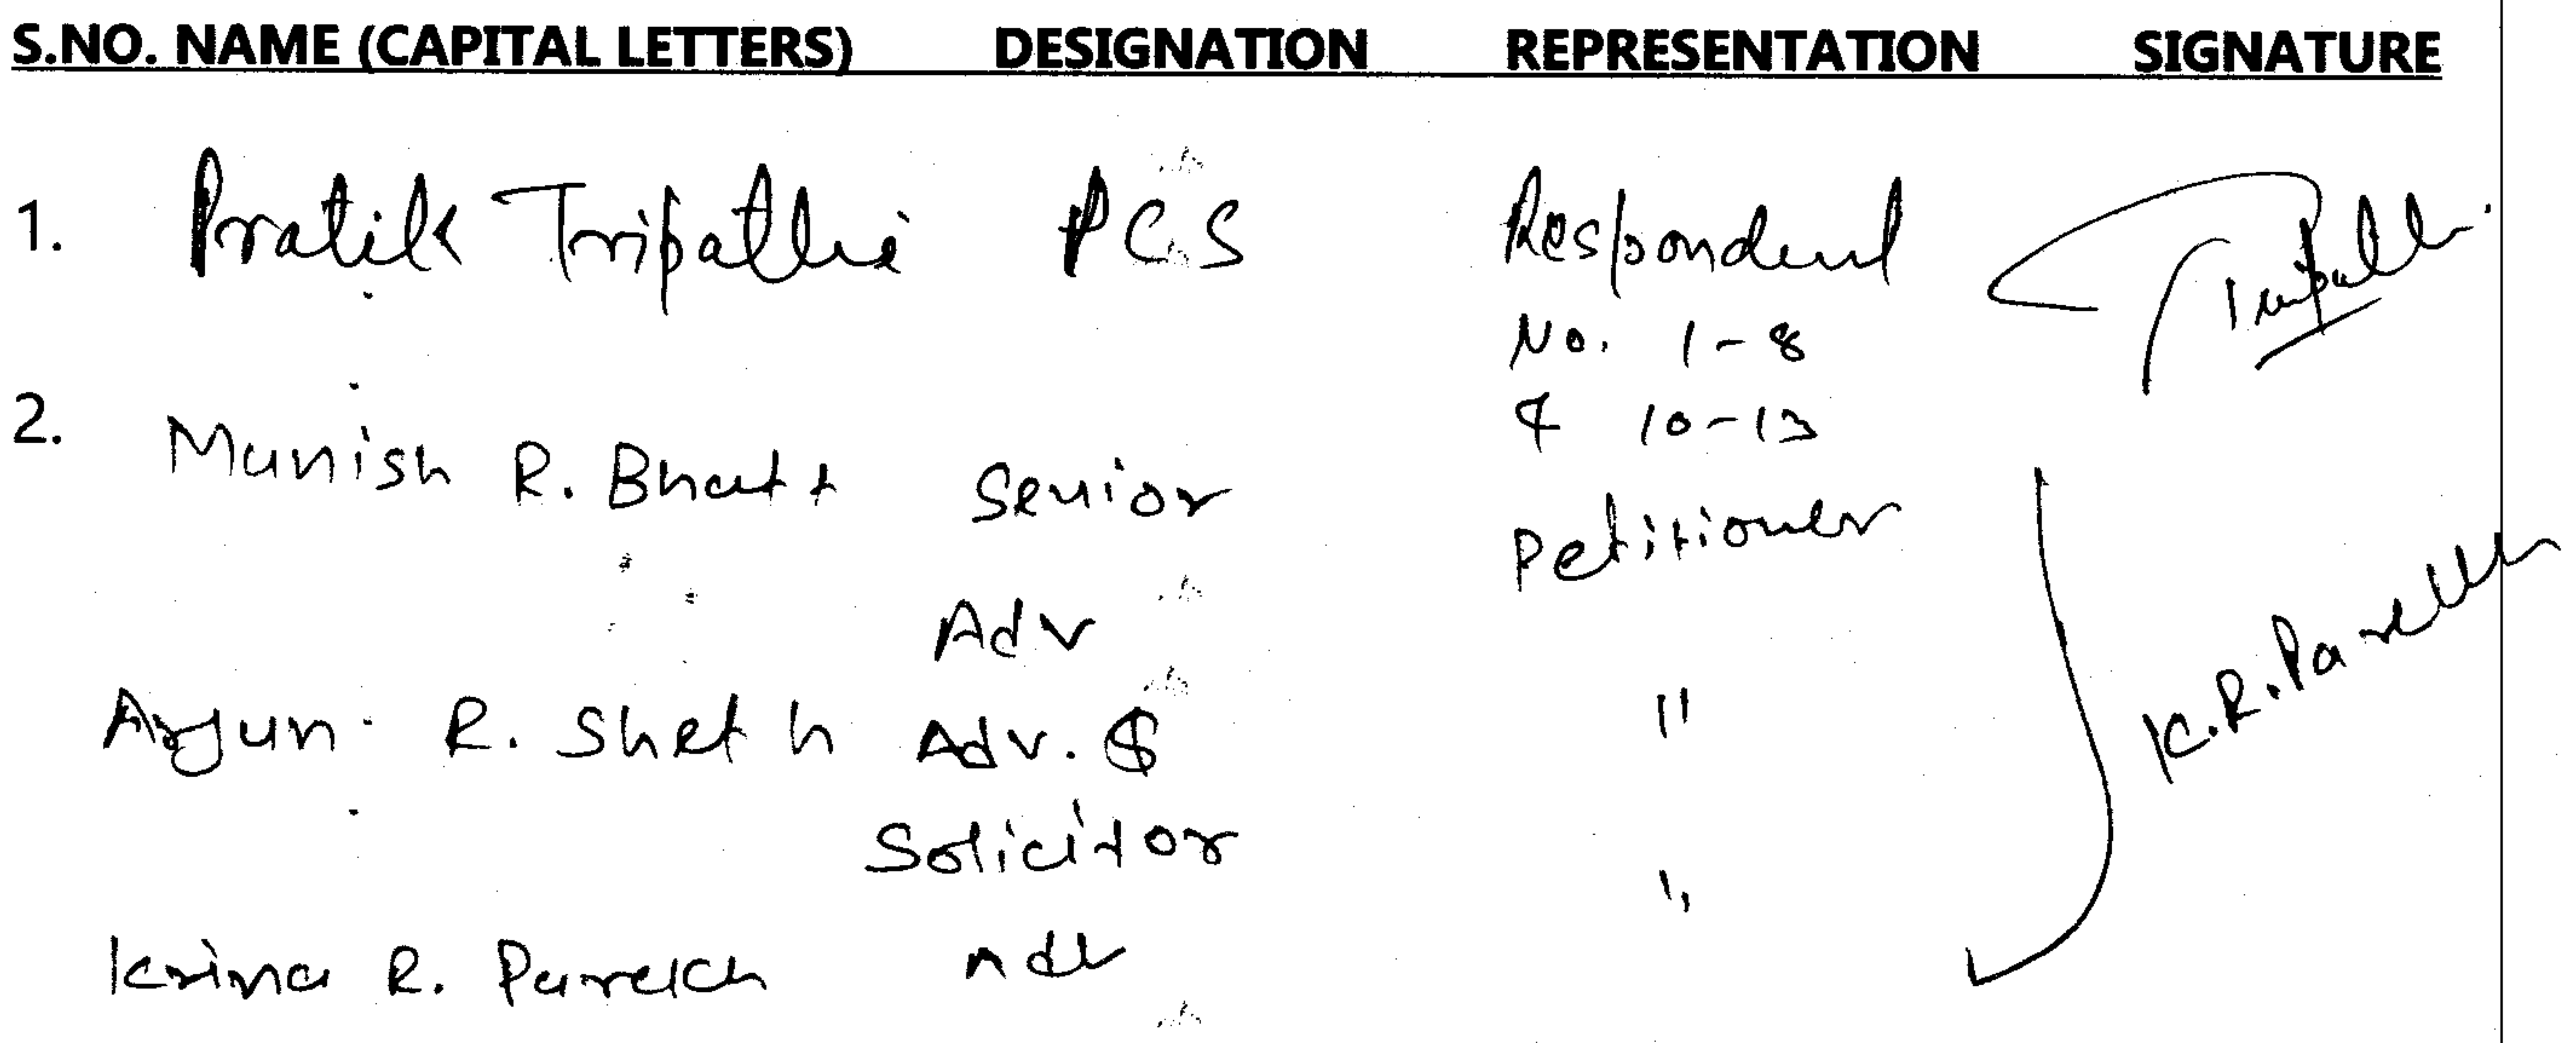 S.NO. NAME (CAPITAL LETTERS) DESIGNATION REPRESENTATION SIGNATURE
1. Pratik Tripathi PCS Respondent Tripathi
No. 1-8
& 10-13
2. Manish R. Bhatt Senior Petitioner
Adv
Arjun R. Sheth Adv. & " K.R. Parekh
Solicitor
"
Krina R. Parekh Adv